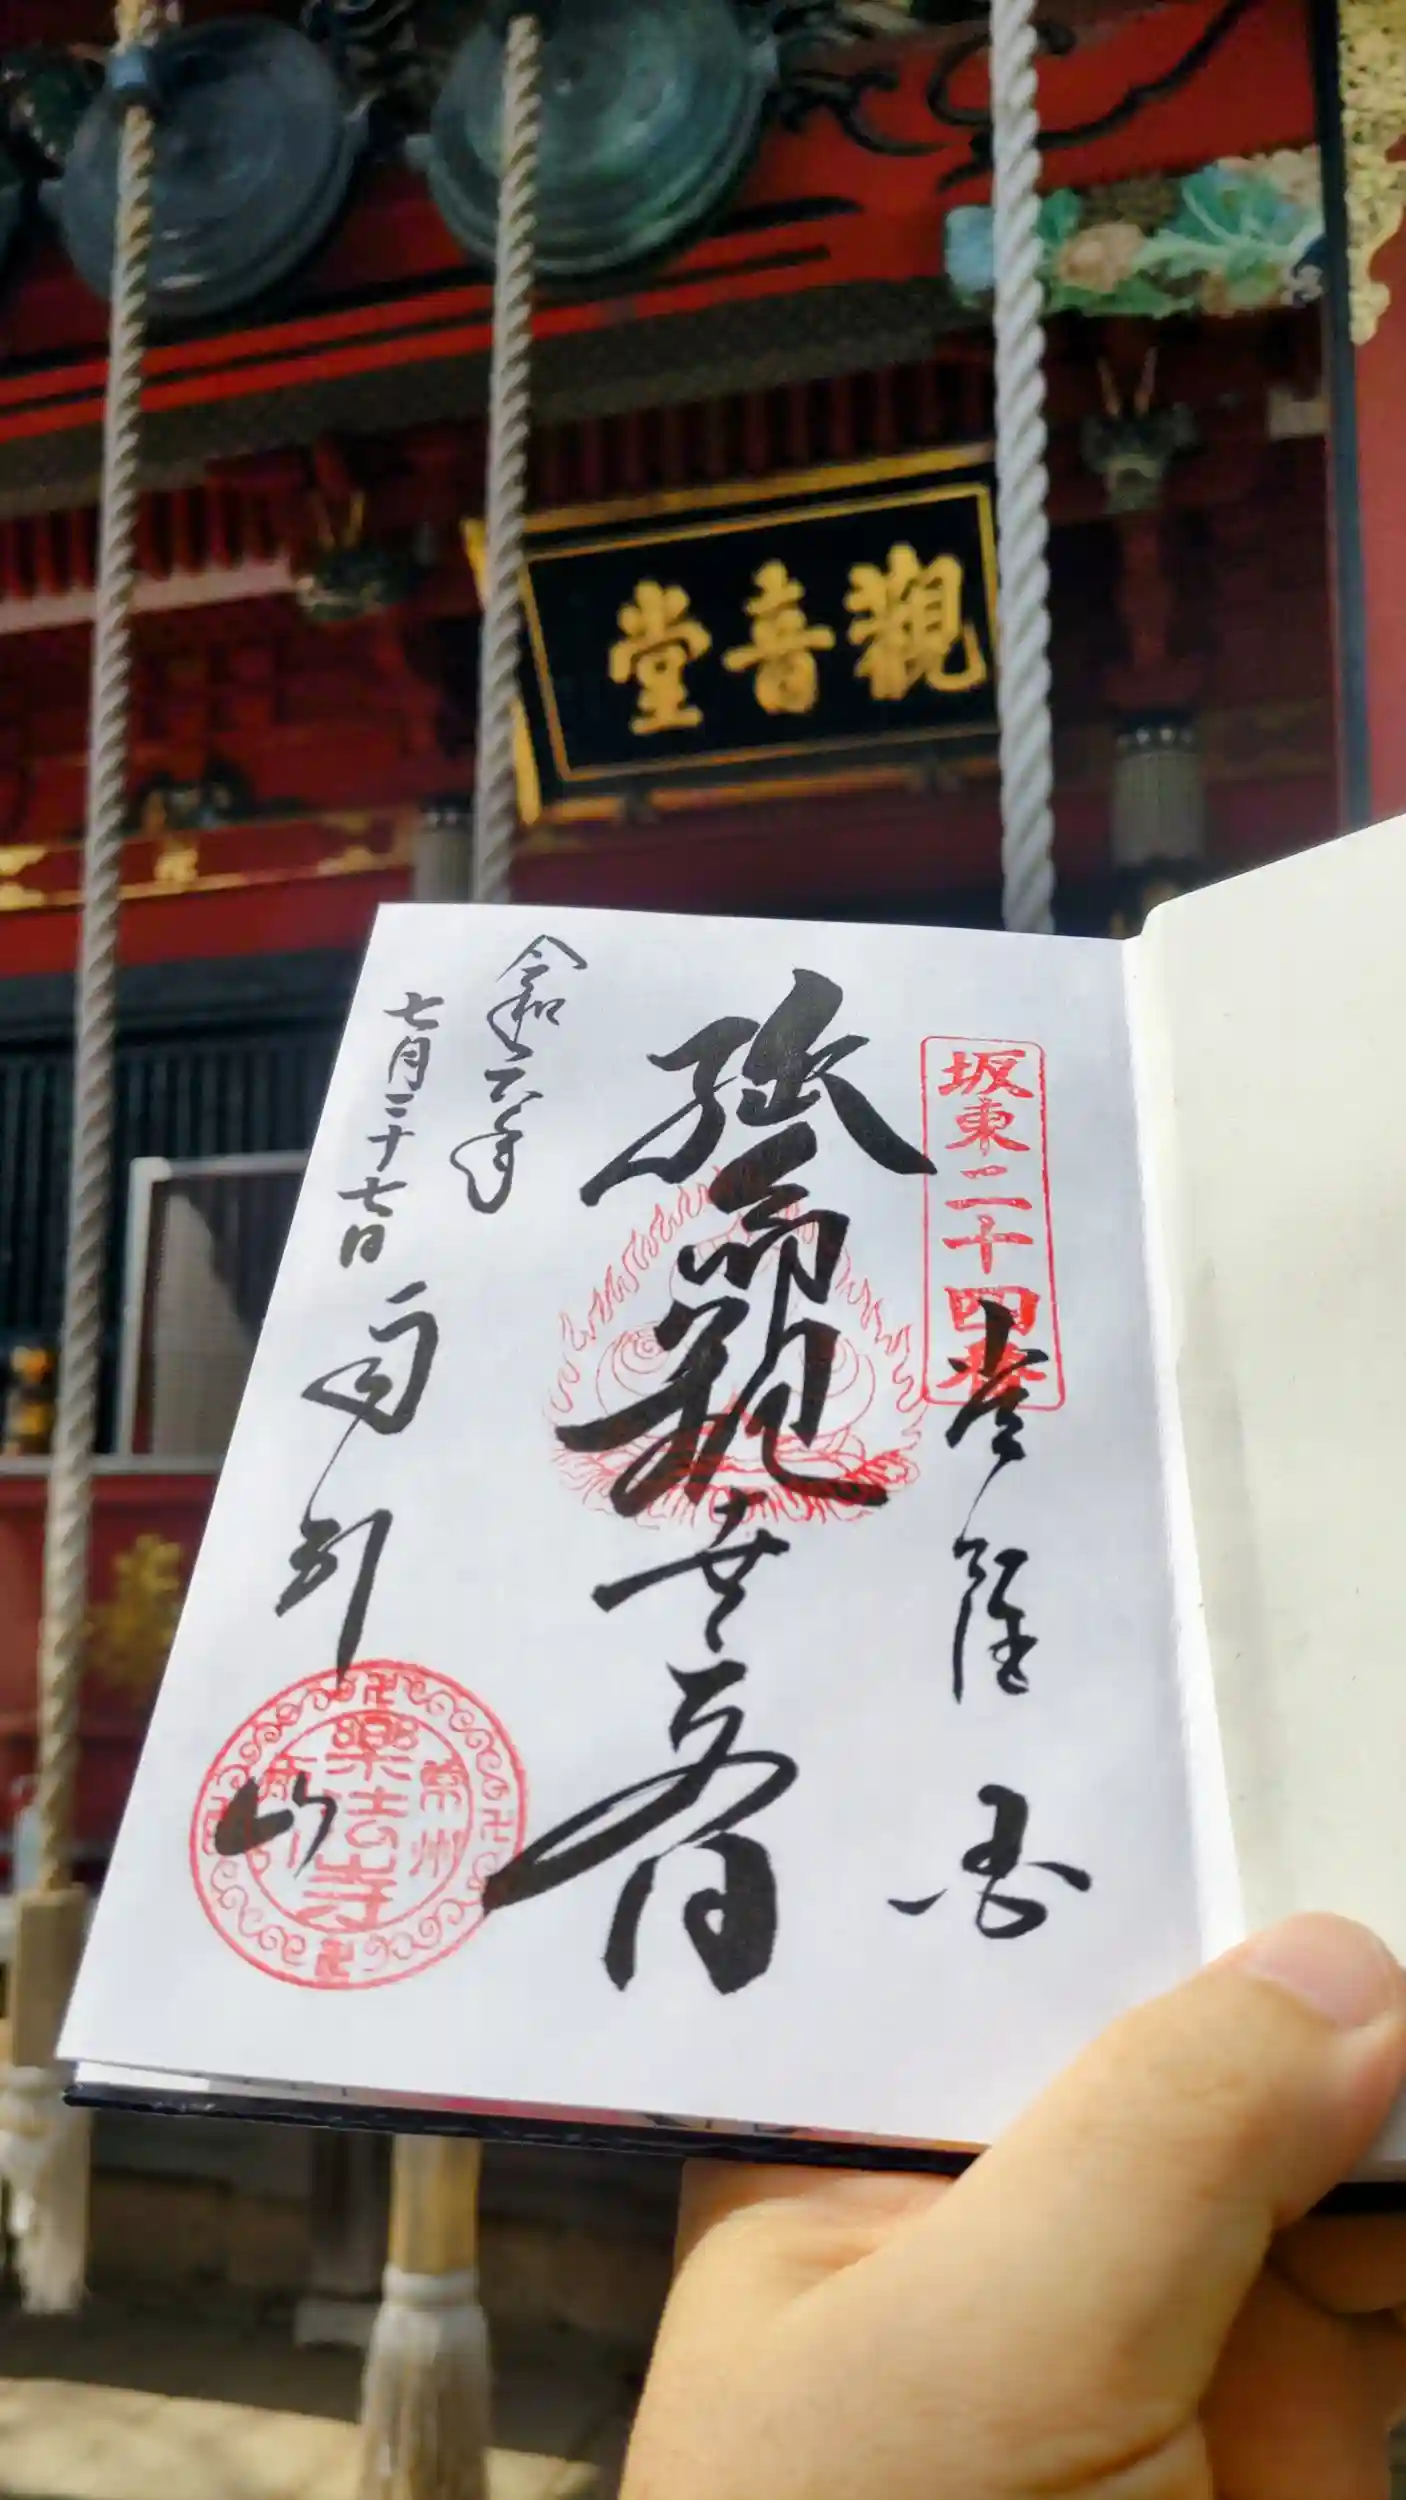 觀音堂
坂東二十四番
奉拝
延命観世音
令和六年
七月二十七日
雨引山
常州
楽法寺
雨引山